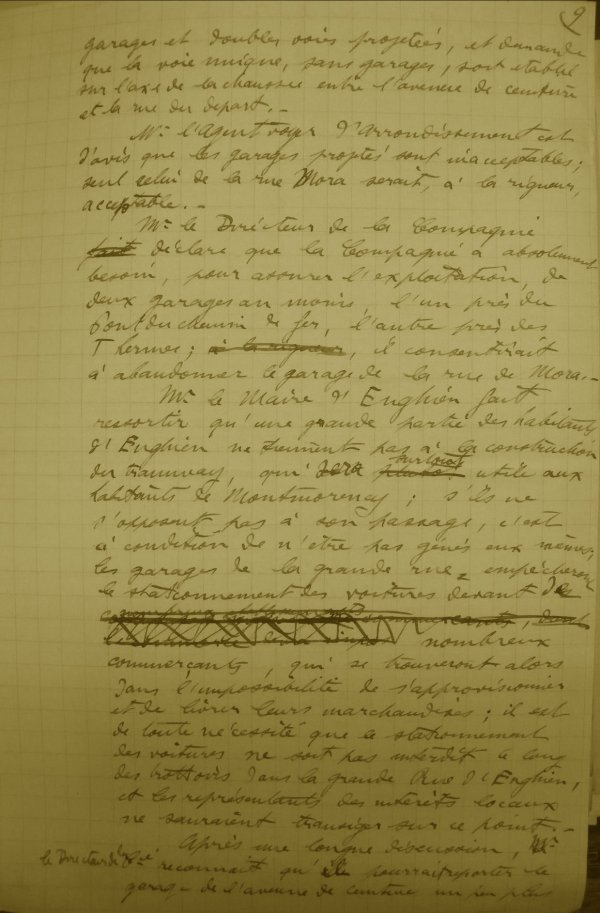 9
garages et doubles voies projetées, et demande
que la voie unique, sans garages, soit établie
sur l'axe de la chaussée entre l'avenue de ceinture
et la rue du départ. -
Mr l'Agent voyer d'arrondissement est
d'avis que les garages projetés sont inacceptables;
seul celui de la rue Mora serait, à la rigueur,
acceptable. -
Mr le Directeur de la Compagnie
déclare que la Compagnie a absolument
besoin, pour assurer l'exploitation, de
deux garages au moins, l'un près du
Pont du chemin de fer, l'autre près des
Thermes; à la rigueur, il consentirait
à abandonner le garage de la rue de Mora. -
Mr le Maire d'Enghien fait
ressortir qu'une grande partie des habitants
d'Enghien ne tiennent pas à la construction
du tramway, qui sera surtout utile aux
habitants de Montmorency; s'ils ne
s'opposent pas à son passage, c'est
à condition de n'être pas gênés eux mêmes;
les garages de la grande rue empêcheront
le stationnement des voitures devant de
commerçants, dont
nombreux
commerçants, qui se trouveront alors
dans l'impossibilité de s'approvisionner
et de livrer leurs marchandises; il est
de toute nécessité que le stationnement
des voitures ne soit pas interdit le long
des trottoirs dans la grande Rue d'Enghien,
et les représentants des intérêts locaux
ne sauraient transiger sur ce point. -
Après une longue discussion, Mr
le Directeur de la Cie reconnait qu'il pourrait reporter le
garage de l'avenue de ceinture un peu plus